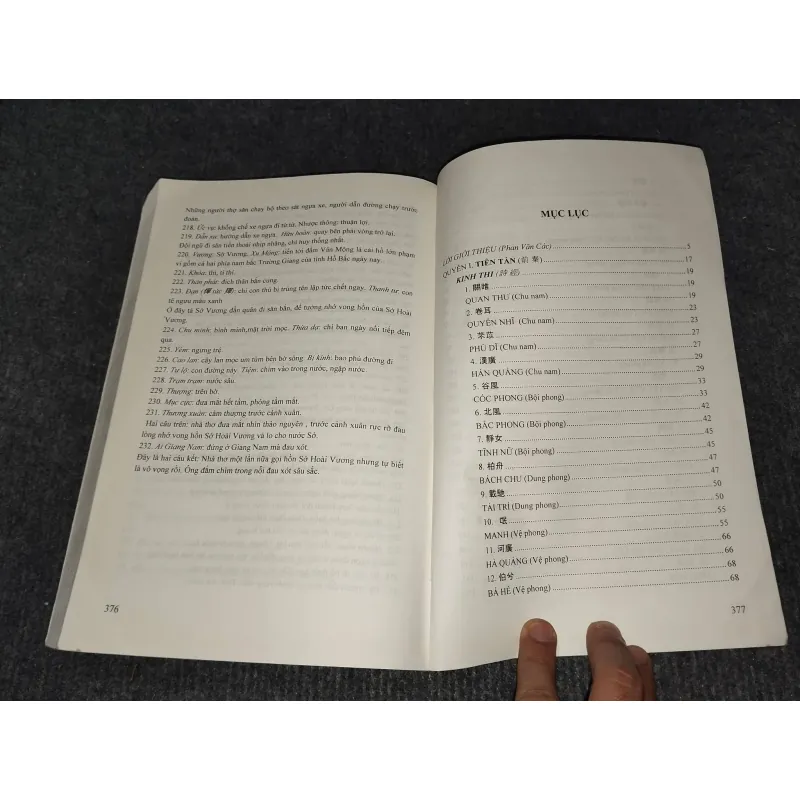 Những người thợ săn chạy bộ theo sát ngựa xe, người dẫn đường chạy trước
đoàn.
218. Ức: khống chế xe ngựa đi từ từ. Nhược thông: thuận lợi.
219. Dẫn xa: hướng dẫn xe ngựa. Hữu hoàn: quay bên phải vòng trở lại.
Đội ngũ đi săn tiến thoái nhịp nhàng, chỉ huy thống nhất.
220. Vương: Sở Vương. Xu Mộng: tiến tới đầm Vân Mộng là cao hồ lớn phạm
vi gồm cả hai phía nam bắc Trường Giang của tỉnh Hồ Bắc ngày nay.
221. Khóa: thi, tỉ thí.
222. Thân phát: đích thân bắn cung.
223. Đạn: chỉ con thú bị trúng tên lập tức chết ngay. Thanh tự: con
tê ngưu màu xanh
Ở đây tả Sở Vương dẫn quân đi săn bắn, để tưởng nhớ vong hồn của Sở Hoài
Vương.
224. Chu minh: bình minh, mặt trời mọc. Thừa dạ: chỉ ban ngày nối tiếp đêm
qua.
225. Yêm: ngưng trệ.
226. Cao lan: cây lan mọc um tùm bên bờ sông. Bị kinh: bao phủ đường đi
227. Tư lộ: con đường này. Tiệm: chìm vào trong nước, ngập nước.
228. Trạm trạm: nước sâu.
229. Thượng: trên bờ.
230. Mục cực: đưa mắt hết tầm, phóng tầm mắt.
231. Thương xuân: cảm thương trước cảnh xuân.
Hai câu trên: nhà thơ đưa mắt nhìn thảo nguyên , trước cảnh xuân rực rỡ đau
lòng nhớ vong hồn Sở Hoài Vương và lo cho nước Sở.
232. Ai Giang Nam: đứng ở Giang Nam mà đau xót.
Đây là hai câu kết: Nhà thơ một lần nữa gọi hồn Sở Hoài Vương nhưng tự biết
là vô vọng rồi. Ông đắm chìm trong nỗi đau xót sâu sắc.
376
MỤC LỤC
LỜI GIỚI THIỆU (Phan Văn Các) 5
QUYỂN I. TIÊN TẦN (前 秦) 17
KINH THI (詩 經) 19
1. 關雎 19
QUAN THƯ (Chu nam) 19
2. 卷耳 23
QUYỂN NHĨ (Chu nam) 23
3. 芣苡 27
PHÙ DĨ (Chu nam) 27
4. 漢廣 29
HÁN QUẢNG (Chu nam) 29
5. 谷風 33
CỐC PHONG (Bội phong) 33
6. 北風 42
BẮC PHONG (Bội phong) 42
7. 靜女 45
TĨNH NỮ (Bội phong) 45
8. 柏舟 47
BÁCH CHU (Dung phong) 47
9. 載馳 50
TÁI TRÌ (Dung phong) 50
10. 氓 55
MANH (Vệ phong) 55
11. 河廣 66
HÀ QUẢNG (Vệ phong) 66
12. 伯兮 68
BÁ HỀ (Vệ phong) 68
377